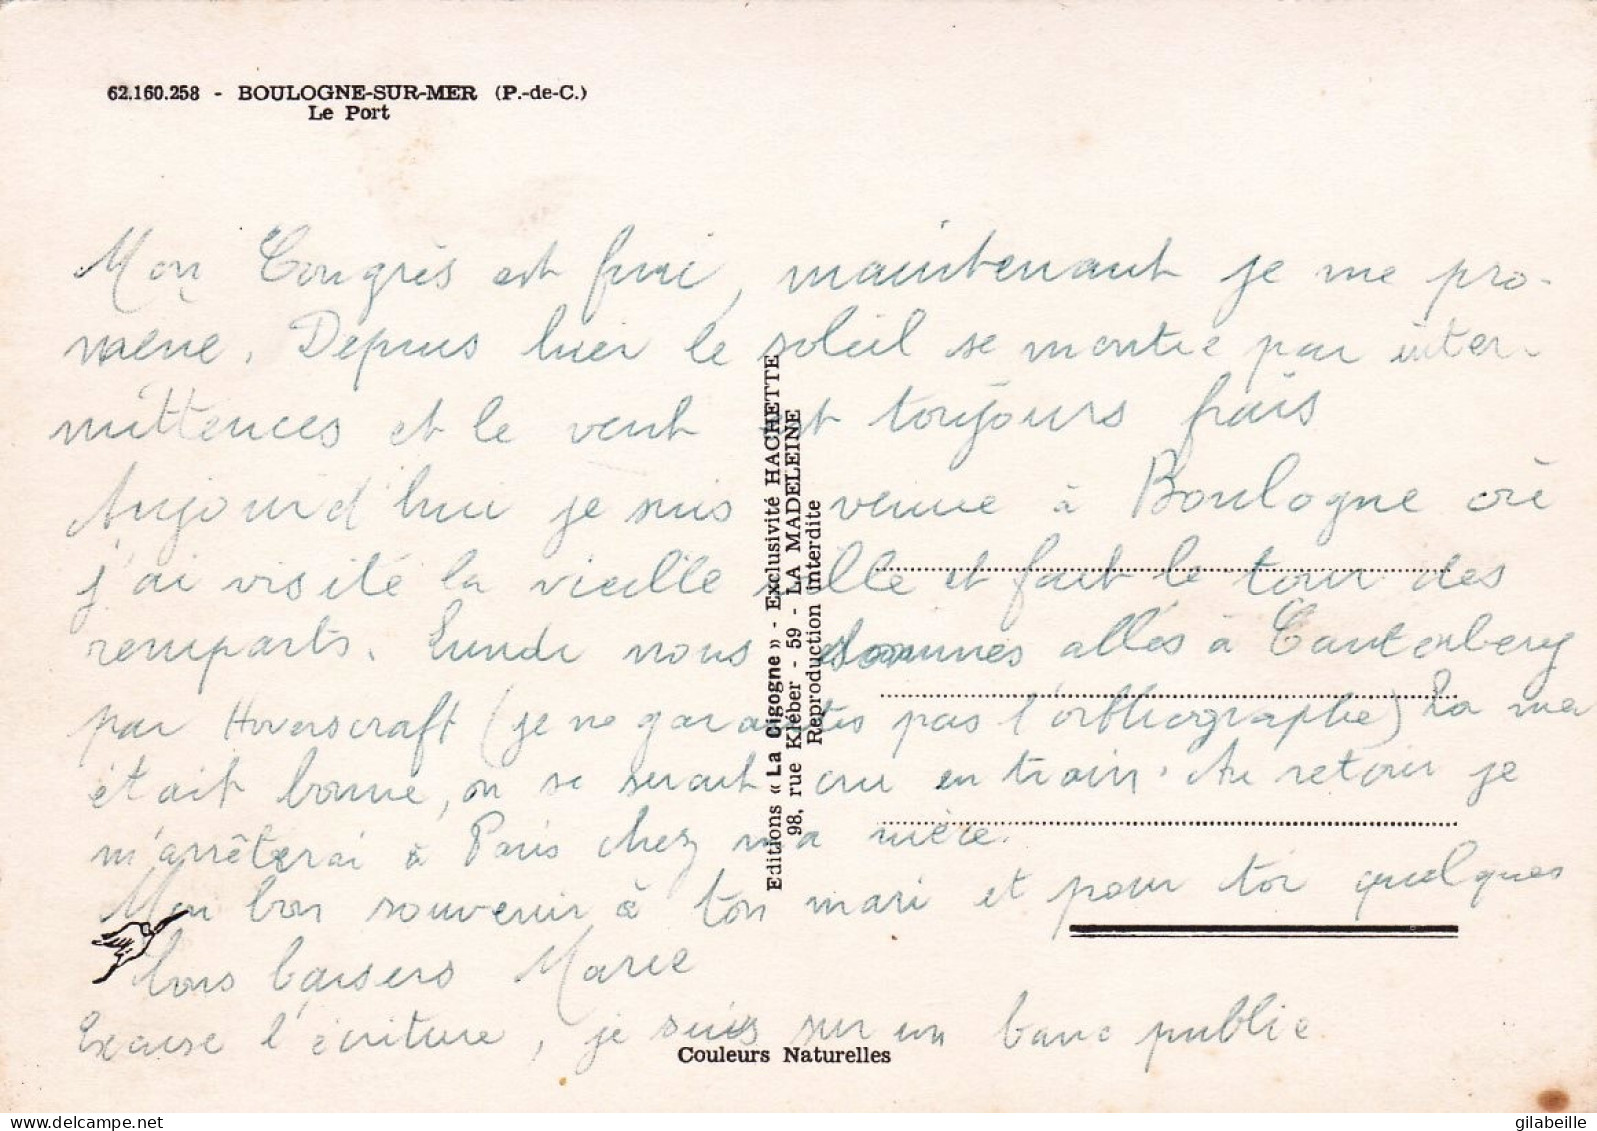 62.160.258 - BOULOGNE-SUR-MER (P.-de-C.)
Le Port
Mon Congrès est fini, maintenant je me pro-
mène. Depuis hier le soleil se montre par inter-
mittences et le vent est toujours frais
Aujourd'hui je suis venue à Boulogne où
j'ai visité la vieille ville et fait le tour des
remparts. Lundi nous sommes allés à Canterbery
par Hoverscraft (je ne garantis pas l'orthographe) La mer
était bonne, on se serait cru en train. Au retour je
m'arrêterai à Paris chez ma mère.
Mon bon souvenir à ton mari et pour toi quelques
bons baisers Marie
Excuse l'écriture, je suis sur un banc public
Editions « La Cigogne » - Exclusivité HACHETTE
98, rue Kléber - 59 - LA MADELEINE
Reproduction interdite
Couleurs Naturelles
gilabeille